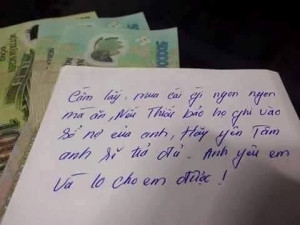 Cầm lấy, mua cái gì ngon ngon
mà ăn, Nếu Thiếu bảo họ ghi vào
sổ nợ của anh, Hãy yên Tâm
anh sẽ trả đủ. Anh yêu em
Và lo cho em được!